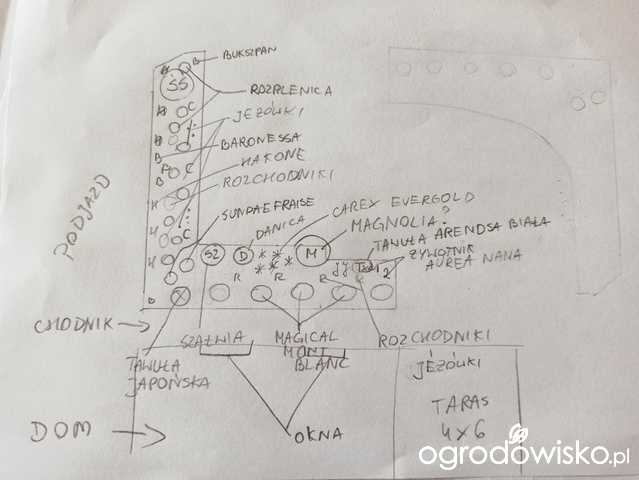 BUKSZPAN
ŚS
ROZPLENICA
JEŻÓWKI
BARONESSA
HAKONE
ROZCHODNIKI
SUNDAEFRAISE
DANICA
CAREX EVERGOLD
MAGNOLIA?
TAWUŁA ARENDSA BIAŁA
ŻYWOTNIK
AUREA NANA
SZ
D
M
R
R
R
PODJAZD
CHODNIK
TAWUŁA
JAPOŃSKA
SZAŁWIA
MAGICAL
MONT
BLANC
ROZCHODNIKI
JEŻÓWKI
TARAS
4x6
DOM
OKNA
ogrodowisko.pl